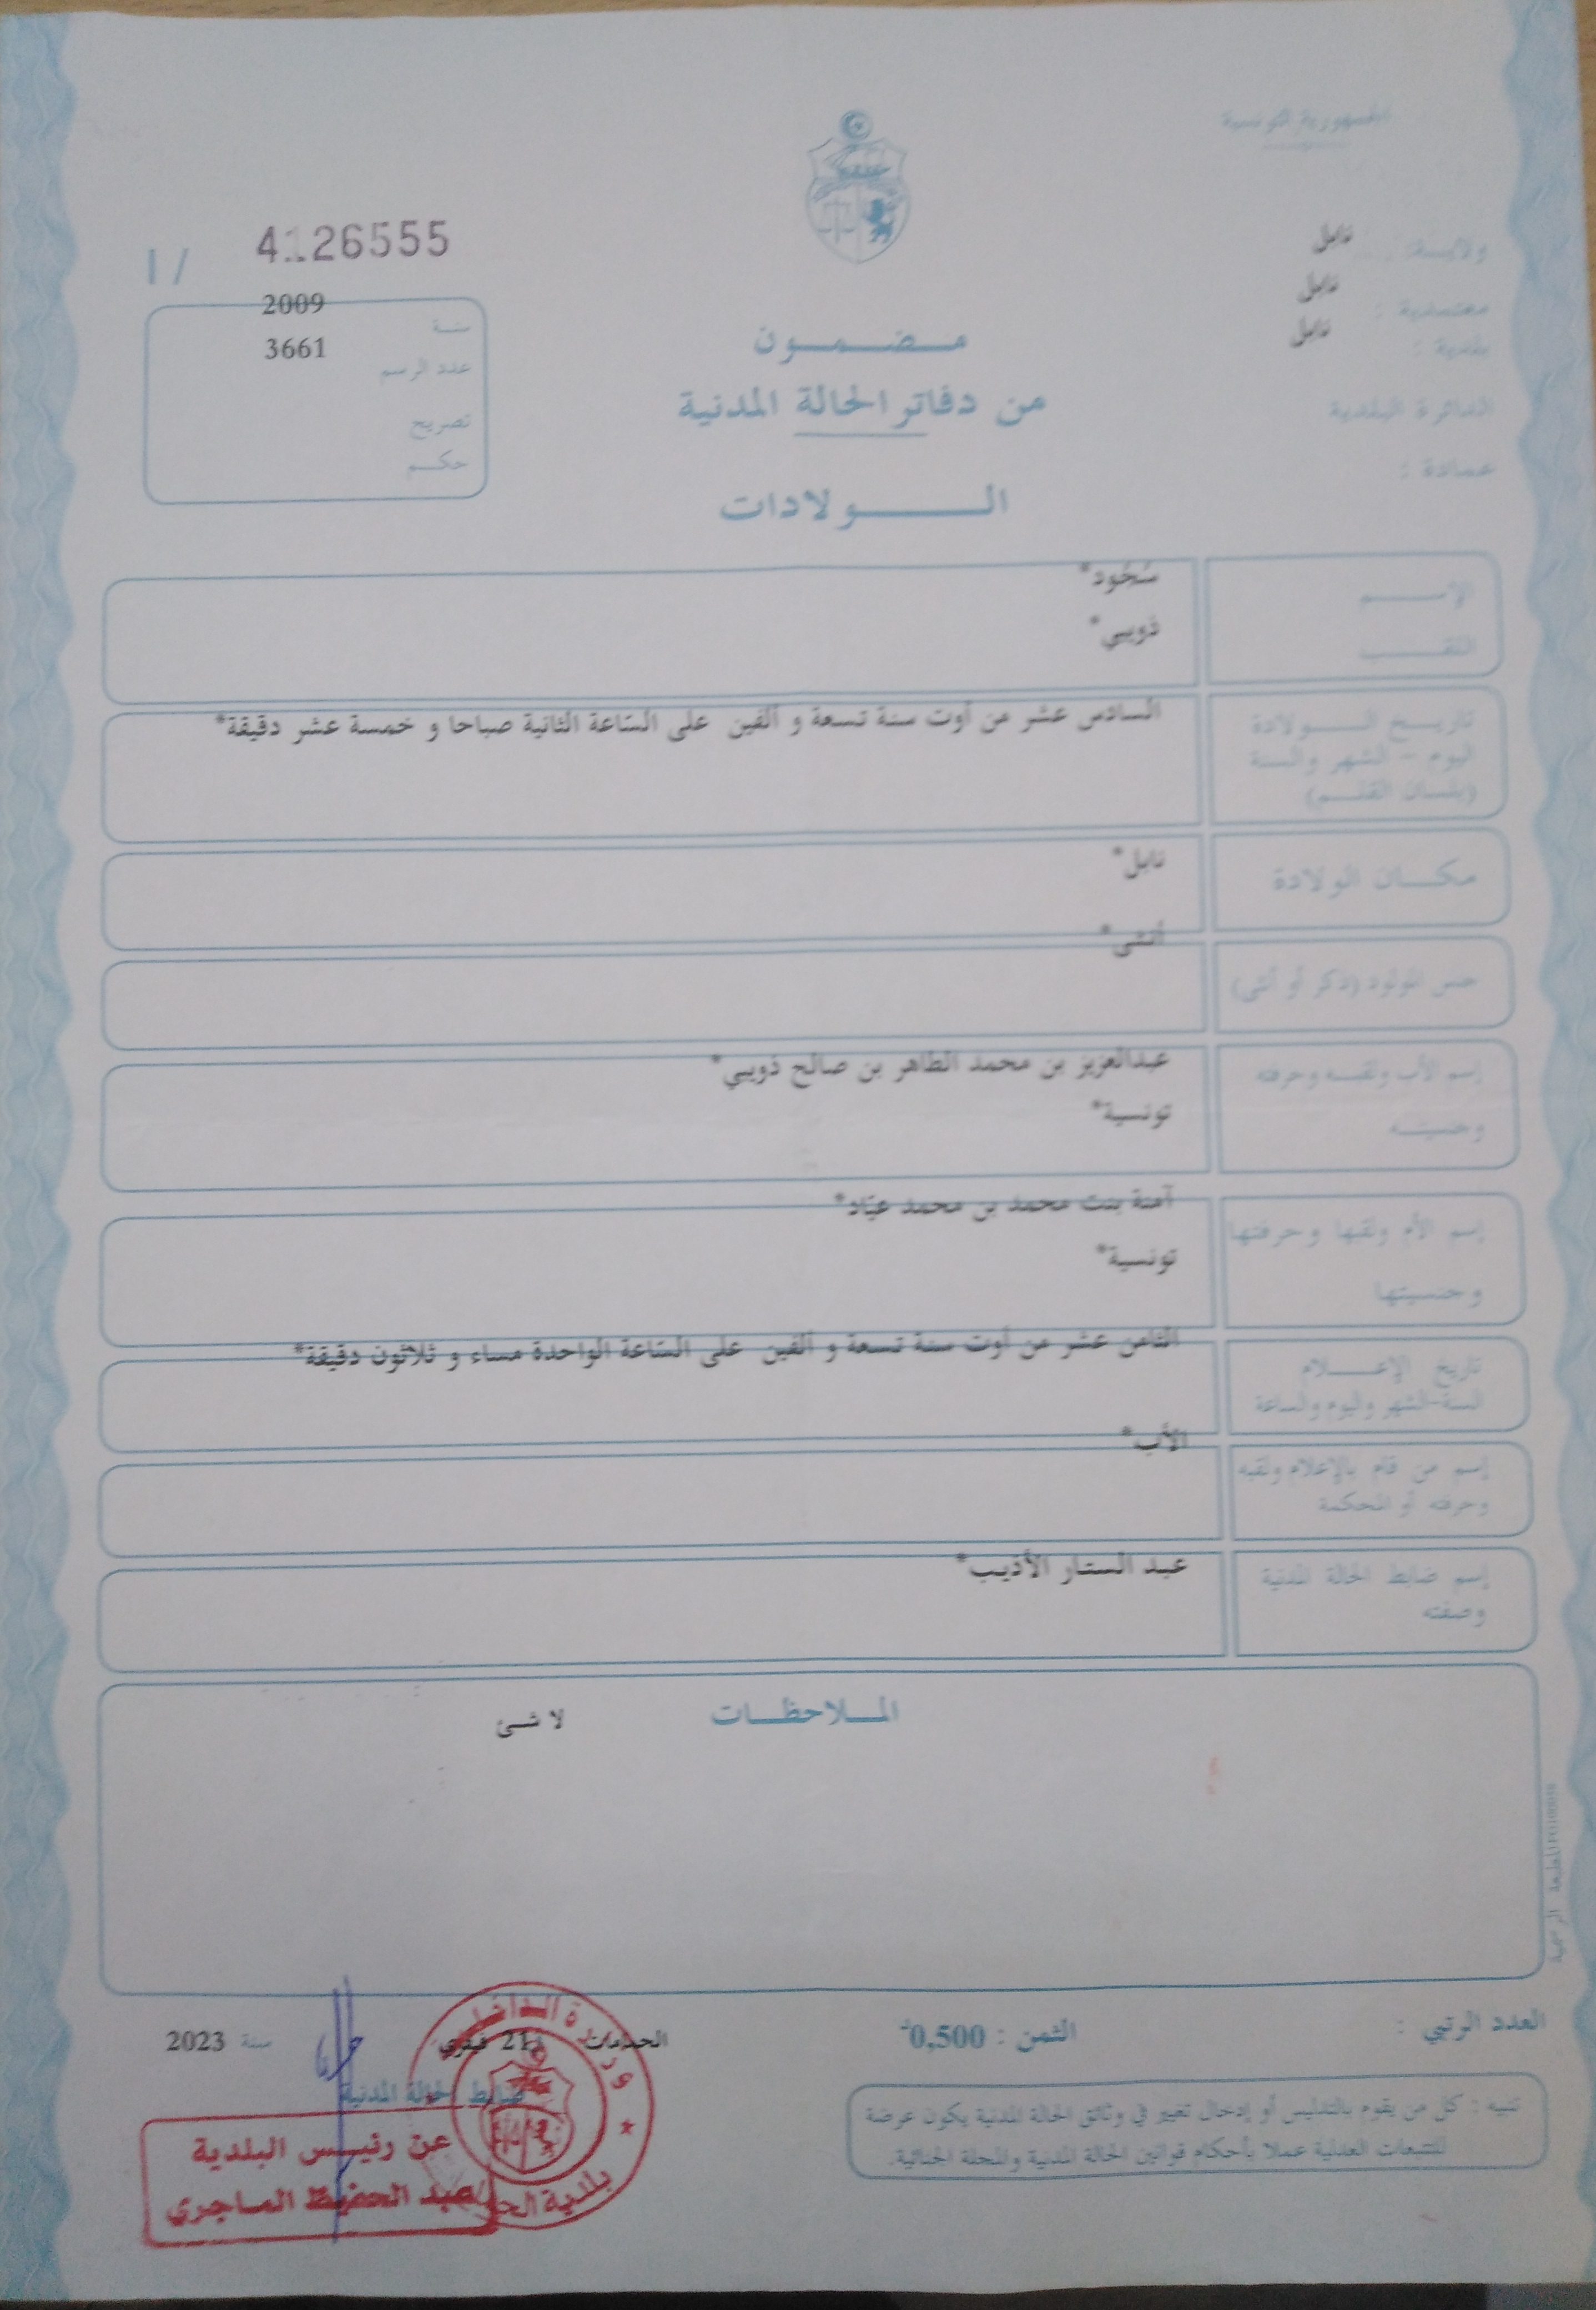 الجمهورية التونسية
4126555 / I
ولايـــة: نابل
معتمدية : نابل
بلدية : نابل
الدائرة البلدية
عمادة :
سنة 2009
عدد الرسم 3661
تصريح
حكم
مـــضـــمـــون
من دفاتر الحالة المدنية
الـــــولادات
الإســـــم
سُجُود*
اللقـــــب
ذويبي*
تاريـــخ الـــــولادة
اليوم - الشهر والسنة
(بلســان القلـــم)
السادس عشر من أوت سنة تسعة و ألفين على السّاعة الثانية صباحا و خمسة عشر دقيقة*
مكـــان الولادة
نابل*
جنس المولود (ذكر أو أنثى)
أنثى*
إسم الأب ولقبـــه وحرفته
عبدالعزيز بن محمد الطاهر بن صالح ذويبي*
وجنسيتـــه
تونسية*
إسم الأم ولقبها وحرفتها
آمنة بنت محمد بن محمد عيّاد*
وجنسيتها
تونسية*
تاريخ الإعـــــلام
السنة-الشهر واليوم والساعة
الثامن عشر من أوت سنة تسعة و ألفين على السّاعة الواحدة مساء و ثلاثون دقيقة*
إسم من قام بالإعلام ولقبه
وحرفته أو المحكمة
الأب*
إسم ضابط الحالة المدنية
وصفته
عبد الستار الأديب*
المـــلاحظـــات
لا شئ
المطبعة الرسمية
العدد الرتبي :
الثمن : 0,500د
21 فيفري سنة 2023
ضابط الحالة المدنية
تنبيه : كل من يقوم بالتدليس أو إدخال تغيير في وثائق الحالة المدنية يكون عرضة
للتتبعات العدلية عملا بأحكام قوانين الحالة المدنية والمجلة الجنائية.
عن رئيـــس البلدية
عبد الحفيظ الماجري
وزارة الداخلية